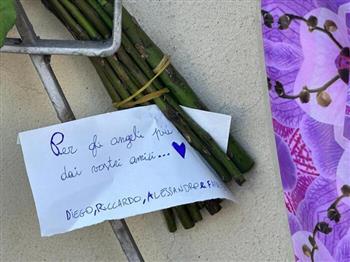 Per gli angeli più
dai vostri amici...
DIEGO, RICCARDO, ALESSANDRO E